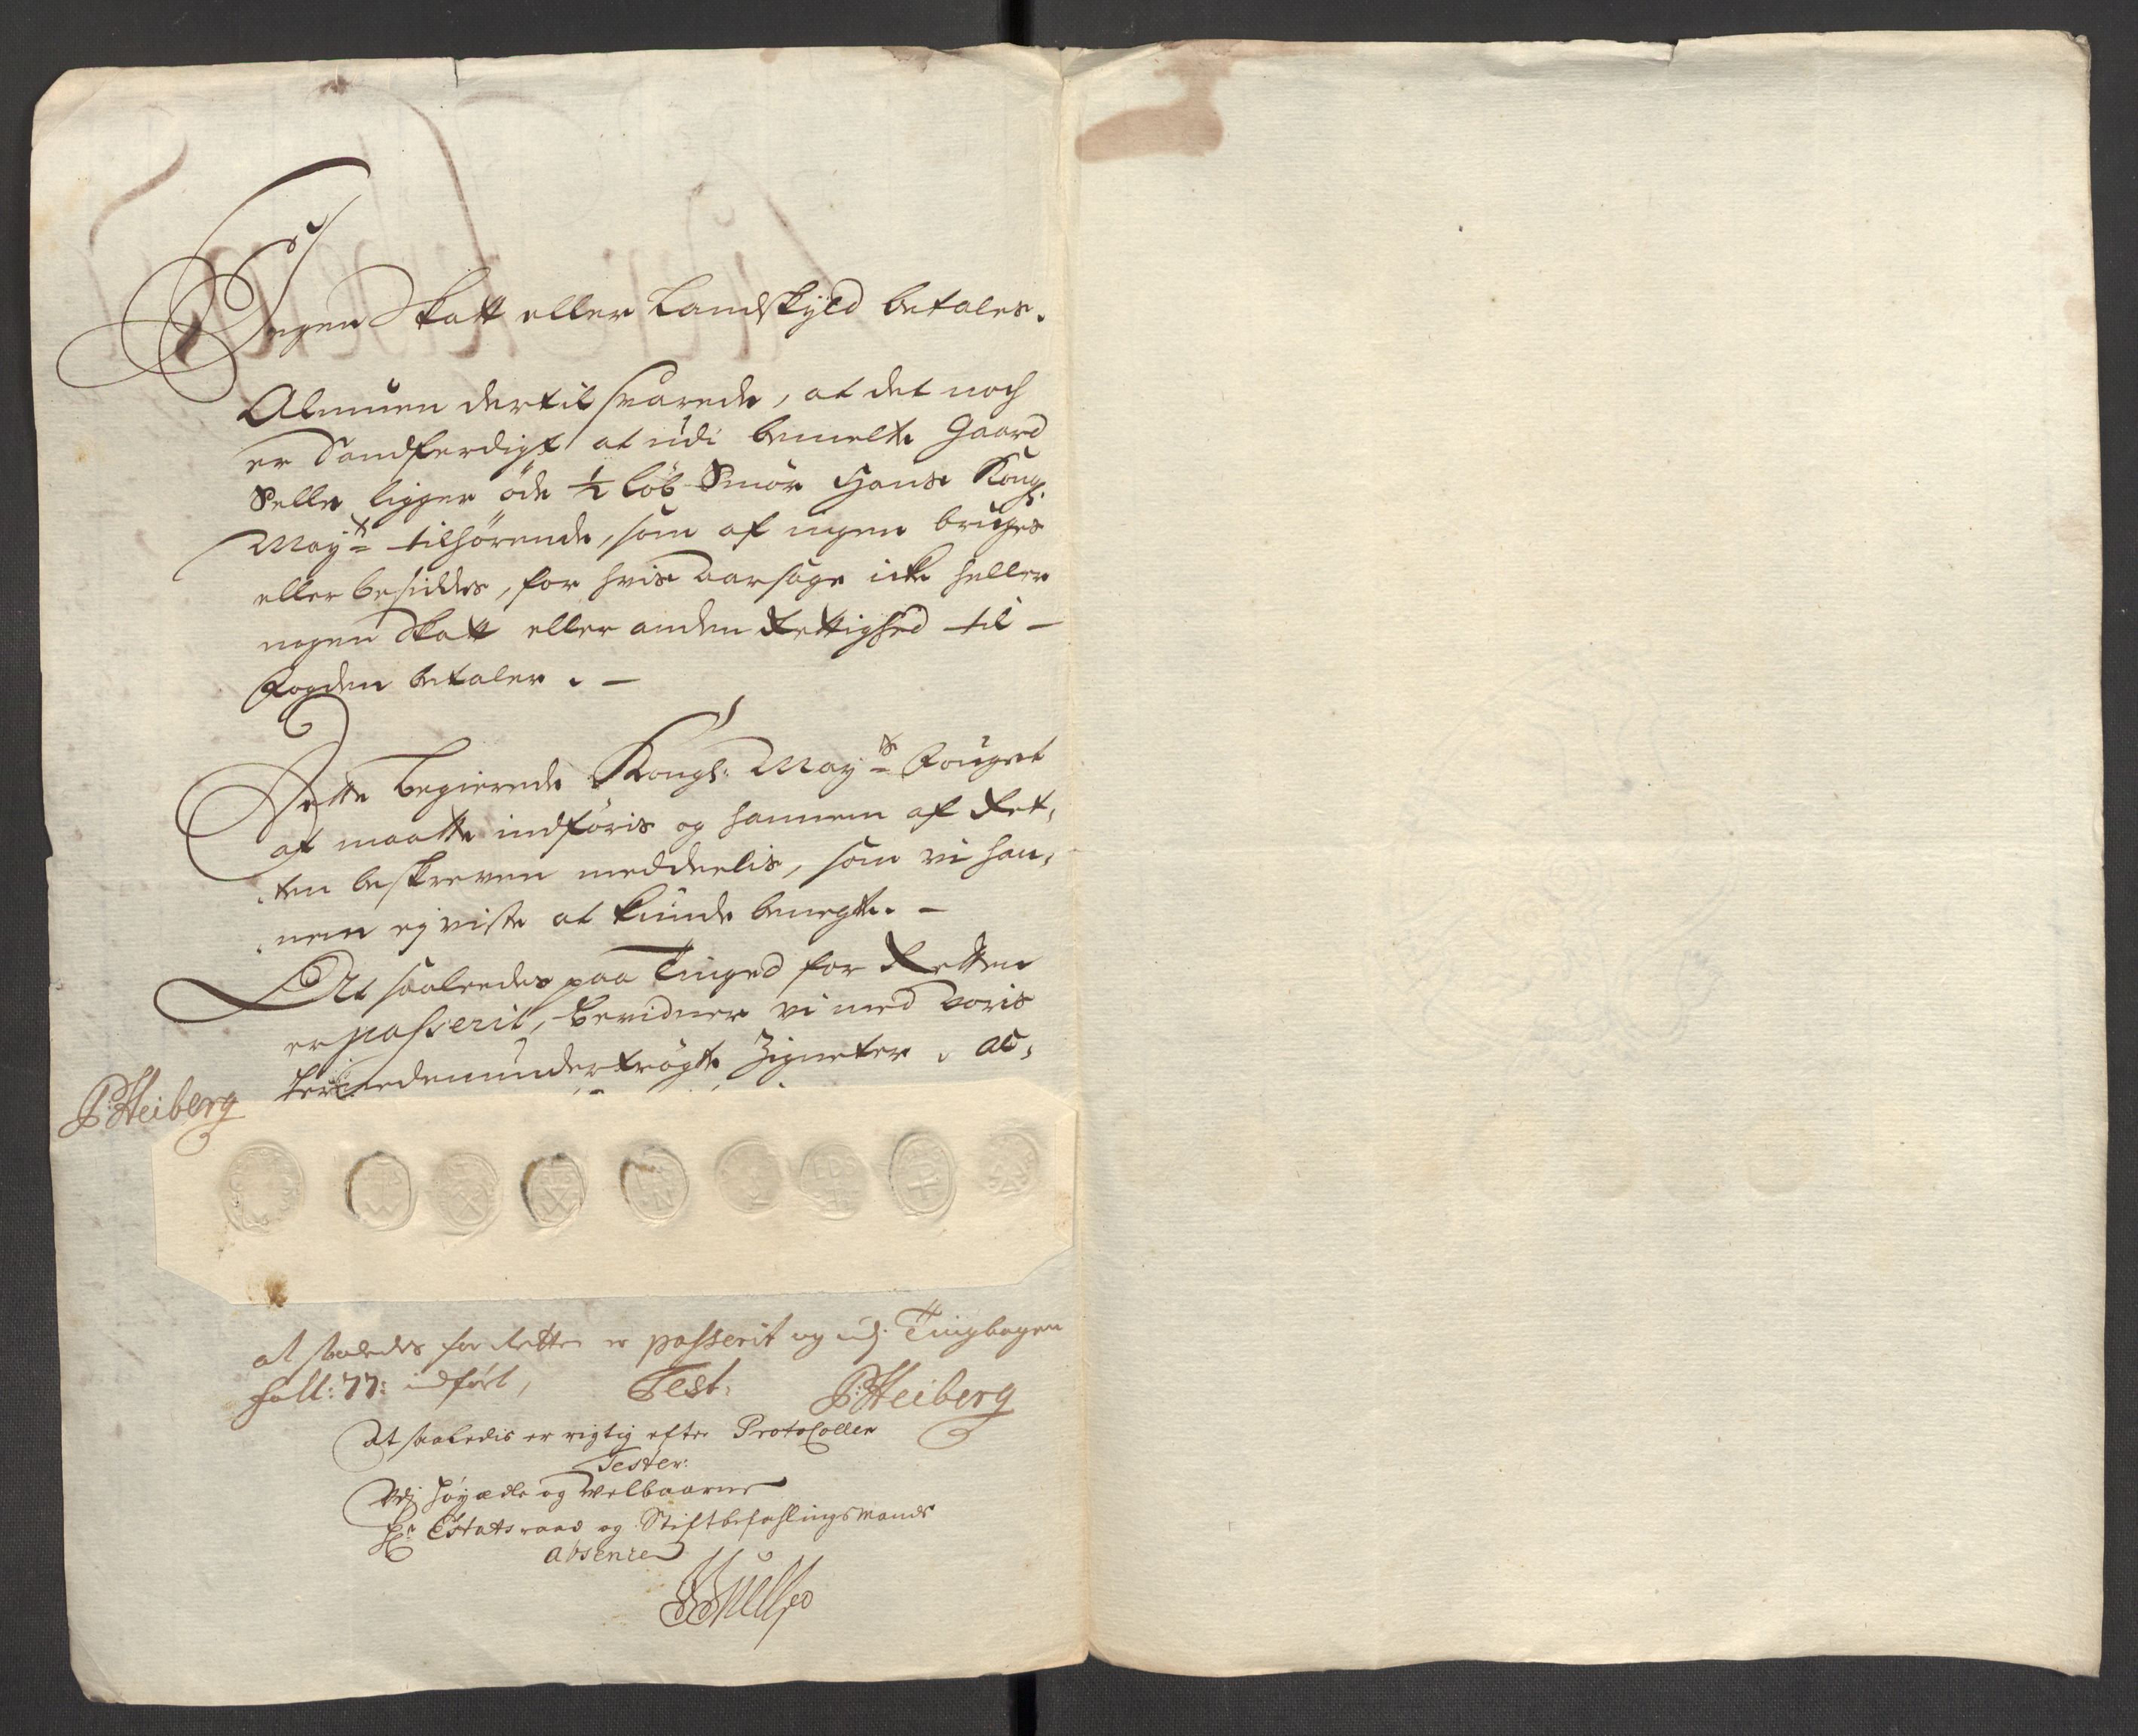 Ingen Skatt eller Landskyld betales.
Almuen dertil svarede, at det noch
er Sandferdigt at udi bemelte Gaard
Selle ligger öde ½ Löb Smör Hans Kongl:
Mayts tilhörende, som af ingen bruges
eller besiddes, for hvis aarsage icke heller
nogen Skatt eller anden Rettighed til –
Fogden betaler. –
Dette begierede Kongl: Mayts Fouget
at maatte indföris og hannem af Ret,
,ten beskreven meddeelis, som vi han,
,nem ej viste at kunde benegte. –
At saaledes paa Tinged for Retten
er passerit, bevidner vi med voris
hermedenundertrögte Zigneter. ac,
P: Heiberg
at saaledes for Retten er passerit og udj Tingbogen
foll: 77: indfört, Test: P: Heiberg
At saaledis er rigtig efter Protocollen
Tester:
Udj höyædle og Velbaarne
Hr Estatsraad og Stiftbefahlingsmands
absence